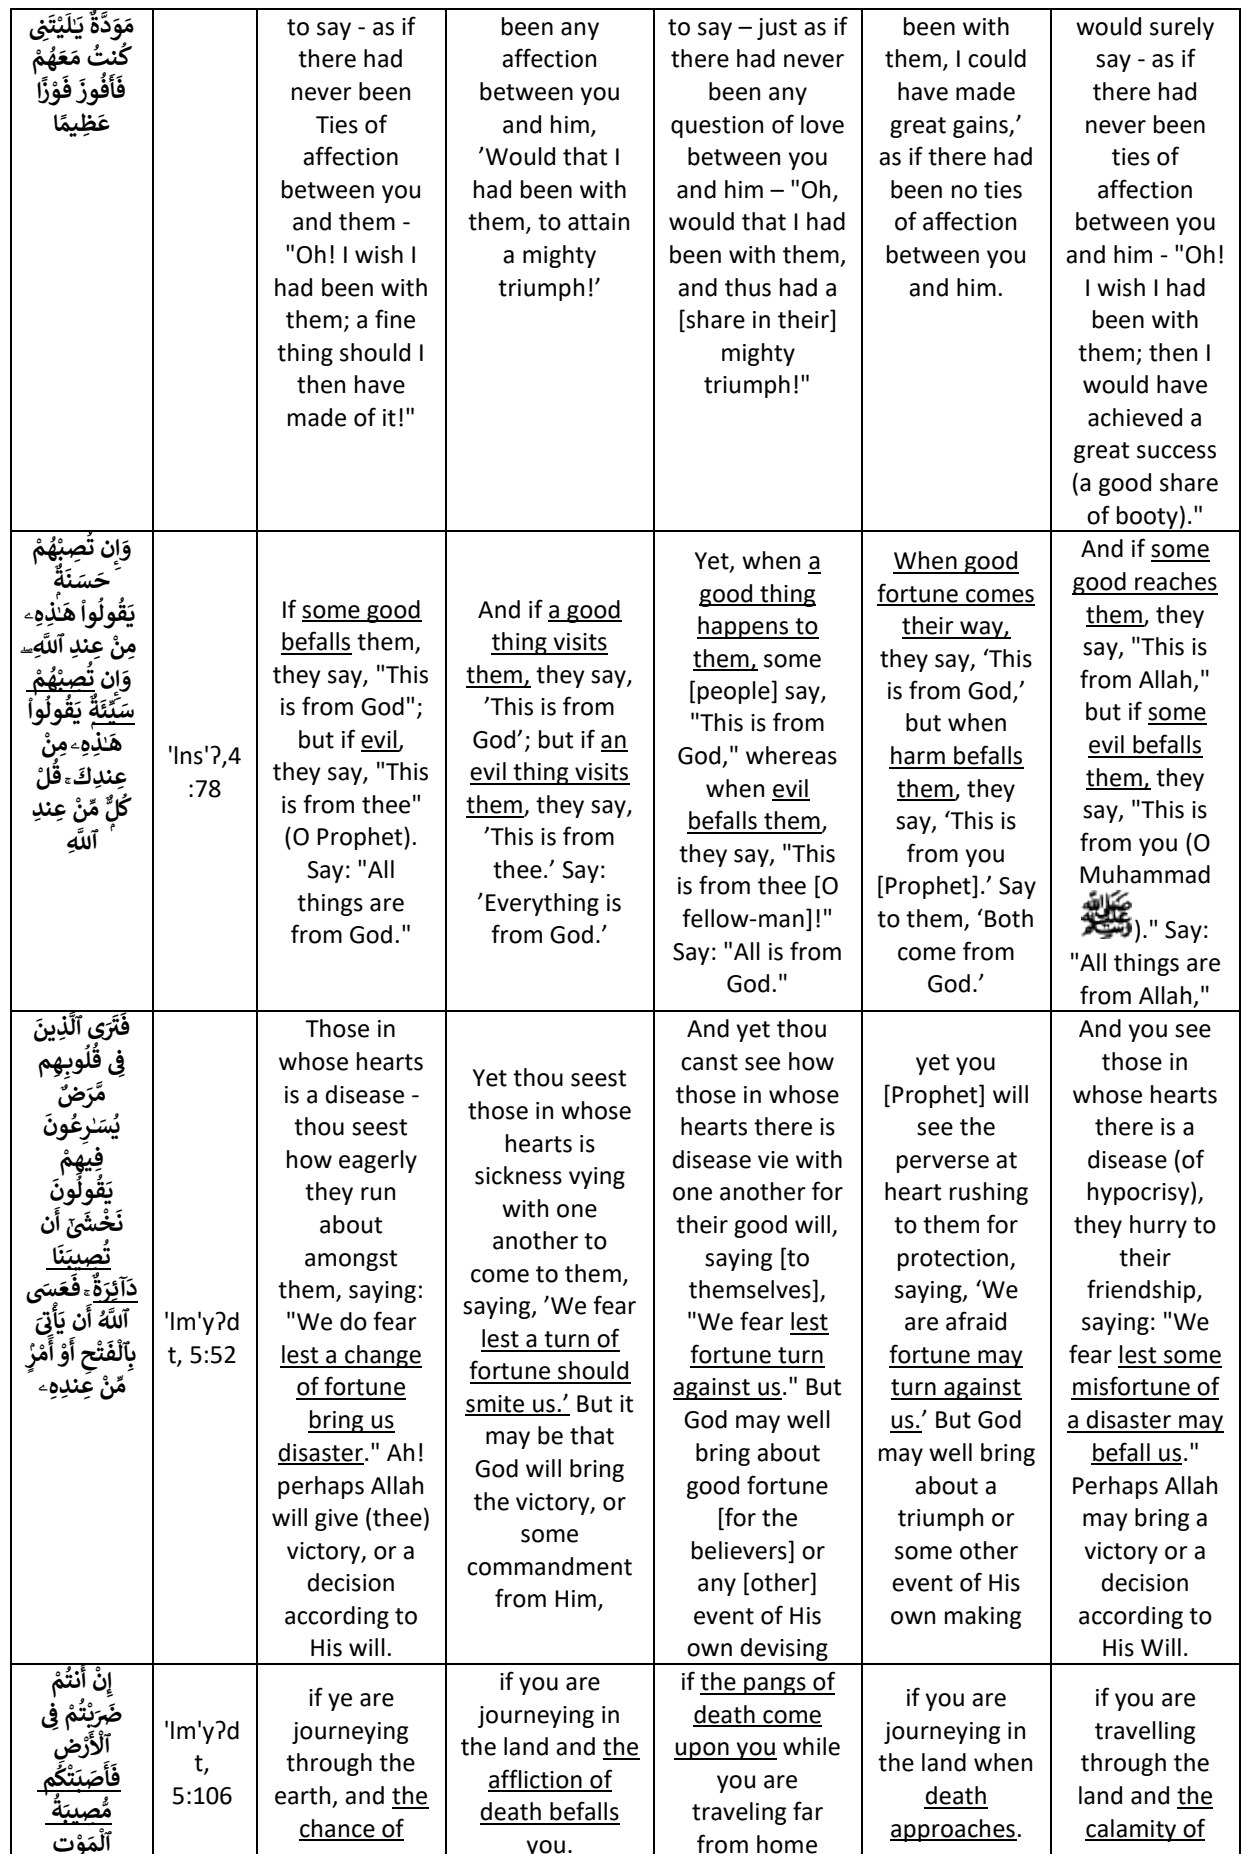 مَوَدَّةٌ يَـٰلَيْتَنِى
كُنتُ مَعَهُمْ
فَأَفُوزَ فَوْزًا
عَظِيمًا
to say - as if
there had
never been
Ties of
affection
between you
and them -
"Oh! I wish I
had been with
them; a fine
thing should I
then have
made of it!"
been any
affection
between you
and him,
’Would that I
had been with
them, to attain
a mighty
triumph!’
to say – just as if
there had never
been any
question of love
between you
and him – "Oh,
would that I had
been with them,
and thus had a
[share in their]
mighty
triumph!"
been with
them, I could
have made
great gains,’
as if there had
been no ties
of affection
between you
and him.
would surely
say - as if
there had
never been
ties of
affection
between you
and him - "Oh!
I wish I had
been with
them; then I
would have
achieved a
great success
(a good share
of booty)."
وَإِن تُصِبْهُمْ
حَسَنَةٌ
يَقُولُوا۟ هَـٰذِهِۦ
مِنْ عِندِ ٱللَّهِ ۖ
وَإِن تُصِبْهُمْ
سَيِّئَةٌ يَقُولُوا۟
هَـٰذِهِۦ مِنْ
عِندِكَ ۚ قُلْ
كُلٌّ مِّنْ عِندِ
ٱللَّهِ
'Ins'ʔ,4
:78
If some good
befalls them,
they say, "This
is from God";
but if evil,
they say, "This
is from thee"
(O Prophet).
Say: "All
things are
from God."
And if a good
thing visits
them, they say,
’This is from
God’; but if an
evil thing visits
them, they say,
’This is from
thee.’ Say:
’Everything is
from God.’
Yet, when a
good thing
happens to
them, some
[people] say,
"This is from
God," whereas
when evil
befalls them,
they say, "This
is from thee [O
fellow-man]!"
Say: "All is from
God."
When good
fortune comes
their way,
they say, ‘This
is from God,’
but when
harm befalls
them, they
say, ‘This is
from you
[Prophet].’ Say
to them, ‘Both
come from
God.’
And if some
good reaches
them, they
say, "This is
from Allah,"
but if some
evil befalls
them, they
say, "This is
from you (O
Muhammad
ﷺ)." Say:
"All things are
from Allah,"
فَتَرَى ٱلَّذِينَ
فِى قُلُوبِهِم
مَّرَضٌ
يُسَـٰرِعُونَ
فِيهِمْ
يَقُولُونَ
نَخْشَىٰٓ أَن
تُصِيبَنَا
دَآئِرَةٌ ۚ فَعَسَى
ٱللَّهُ أَن يَأْتِىَ
بِٱلْفَتْحِ أَوْ أَمْرٍ
مِّنْ عِندِهِۦ
'Im'yʔd
t, 5:52
Those in
whose hearts
is a disease -
thou seest
how eagerly
they run
about
amongst
them, saying:
"We do fear
lest a change
of fortune
bring us
disaster." Ah!
perhaps Allah
will give (thee)
victory, or a
decision
according to
His will.
Yet thou seest
those in whose
hearts is
sickness vying
with one
another to
come to them,
saying, ’We fear
lest a turn of
fortune should
smite us.’ But it
may be that
God will bring
the victory, or
some
commandment
from Him,
And yet thou
canst see how
those in whose
hearts there is
disease vie with
one another for
their good will,
saying [to
themselves],
"We fear lest
fortune turn
against us." But
God may well
bring about
good fortune
[for the
believers] or
any [other]
event of His
own devising
yet you
[Prophet] will
see the
perverse at
heart rushing
to them for
protection,
saying, ‘We
are afraid
fortune may
turn against
us.’ But God
may well bring
about a
triumph or
some other
event of His
own making
And you see
those in
whose hearts
there is a
disease (of
hypocrisy),
they hurry to
their
friendship,
saying: "We
fear lest some
misfortune of
a disaster may
befall us."
Perhaps Allah
may bring a
victory or a
decision
according to
His Will.
إِنْ أَنتُمْ
ضَرَبْتُمْ فِى
ٱلْأَرْضِ
فَأَصَـٰبَتْكُم
مُّصِيبَةُ
ٱلْمَوْتِ
'Im'yʔd
t,
5:106
if ye are
journeying
through the
earth, and the
chance of
if you are
journeying in
the land and the
affliction of
death befalls
you.
if the pangs of
death come
upon you while
you are
traveling far
from home
if you are
journeying in
the land when
death
approaches.
if you are
travelling
through the
land and the
calamity of